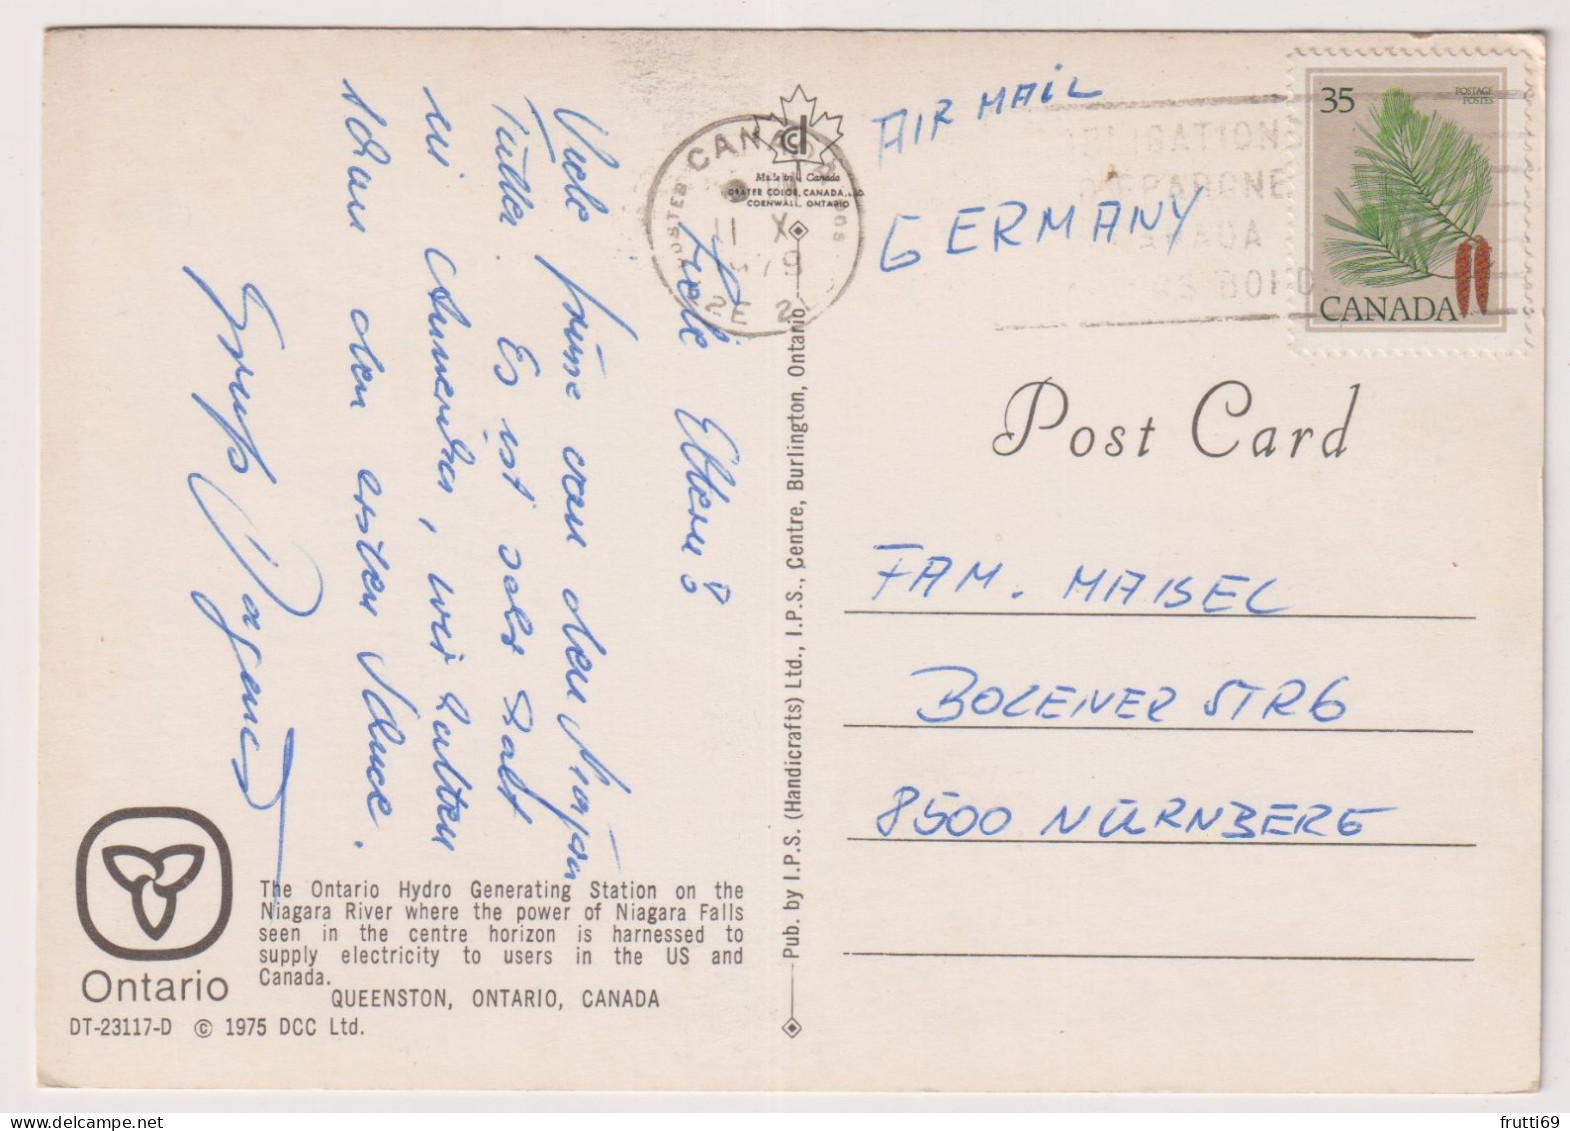 Liebe Eltern!
Viele Grüße von den Niagara
Fälle. Es ist sehr kalt
in Amerika, wir hatten
schon den ersten Schnee.
Gruß Dagmar
AIR MAIL
GERMANY
CANADA
11 X
35
POSTAGE
POSTES
CANADA
Made in Canada
CORNWALL, ONTARIO
Post Card
FAM. MAISEL
BOZENER STR 6
8500 NÜRNBERG
Pub. by I.P.S. (Handicrafts) Ltd., I.P.S., Centre, Burlington, Ontario
The Ontario Hydro Generating Station on the
Niagara River where the power of Niagara Falls
seen in the centre horizon is harnessed to
supply electricity to users in the US and
Canada.
QUEENSTON, ONTARIO, CANADA
Ontario
DT-23117-D © 1975 DCC Ltd.
frutti69